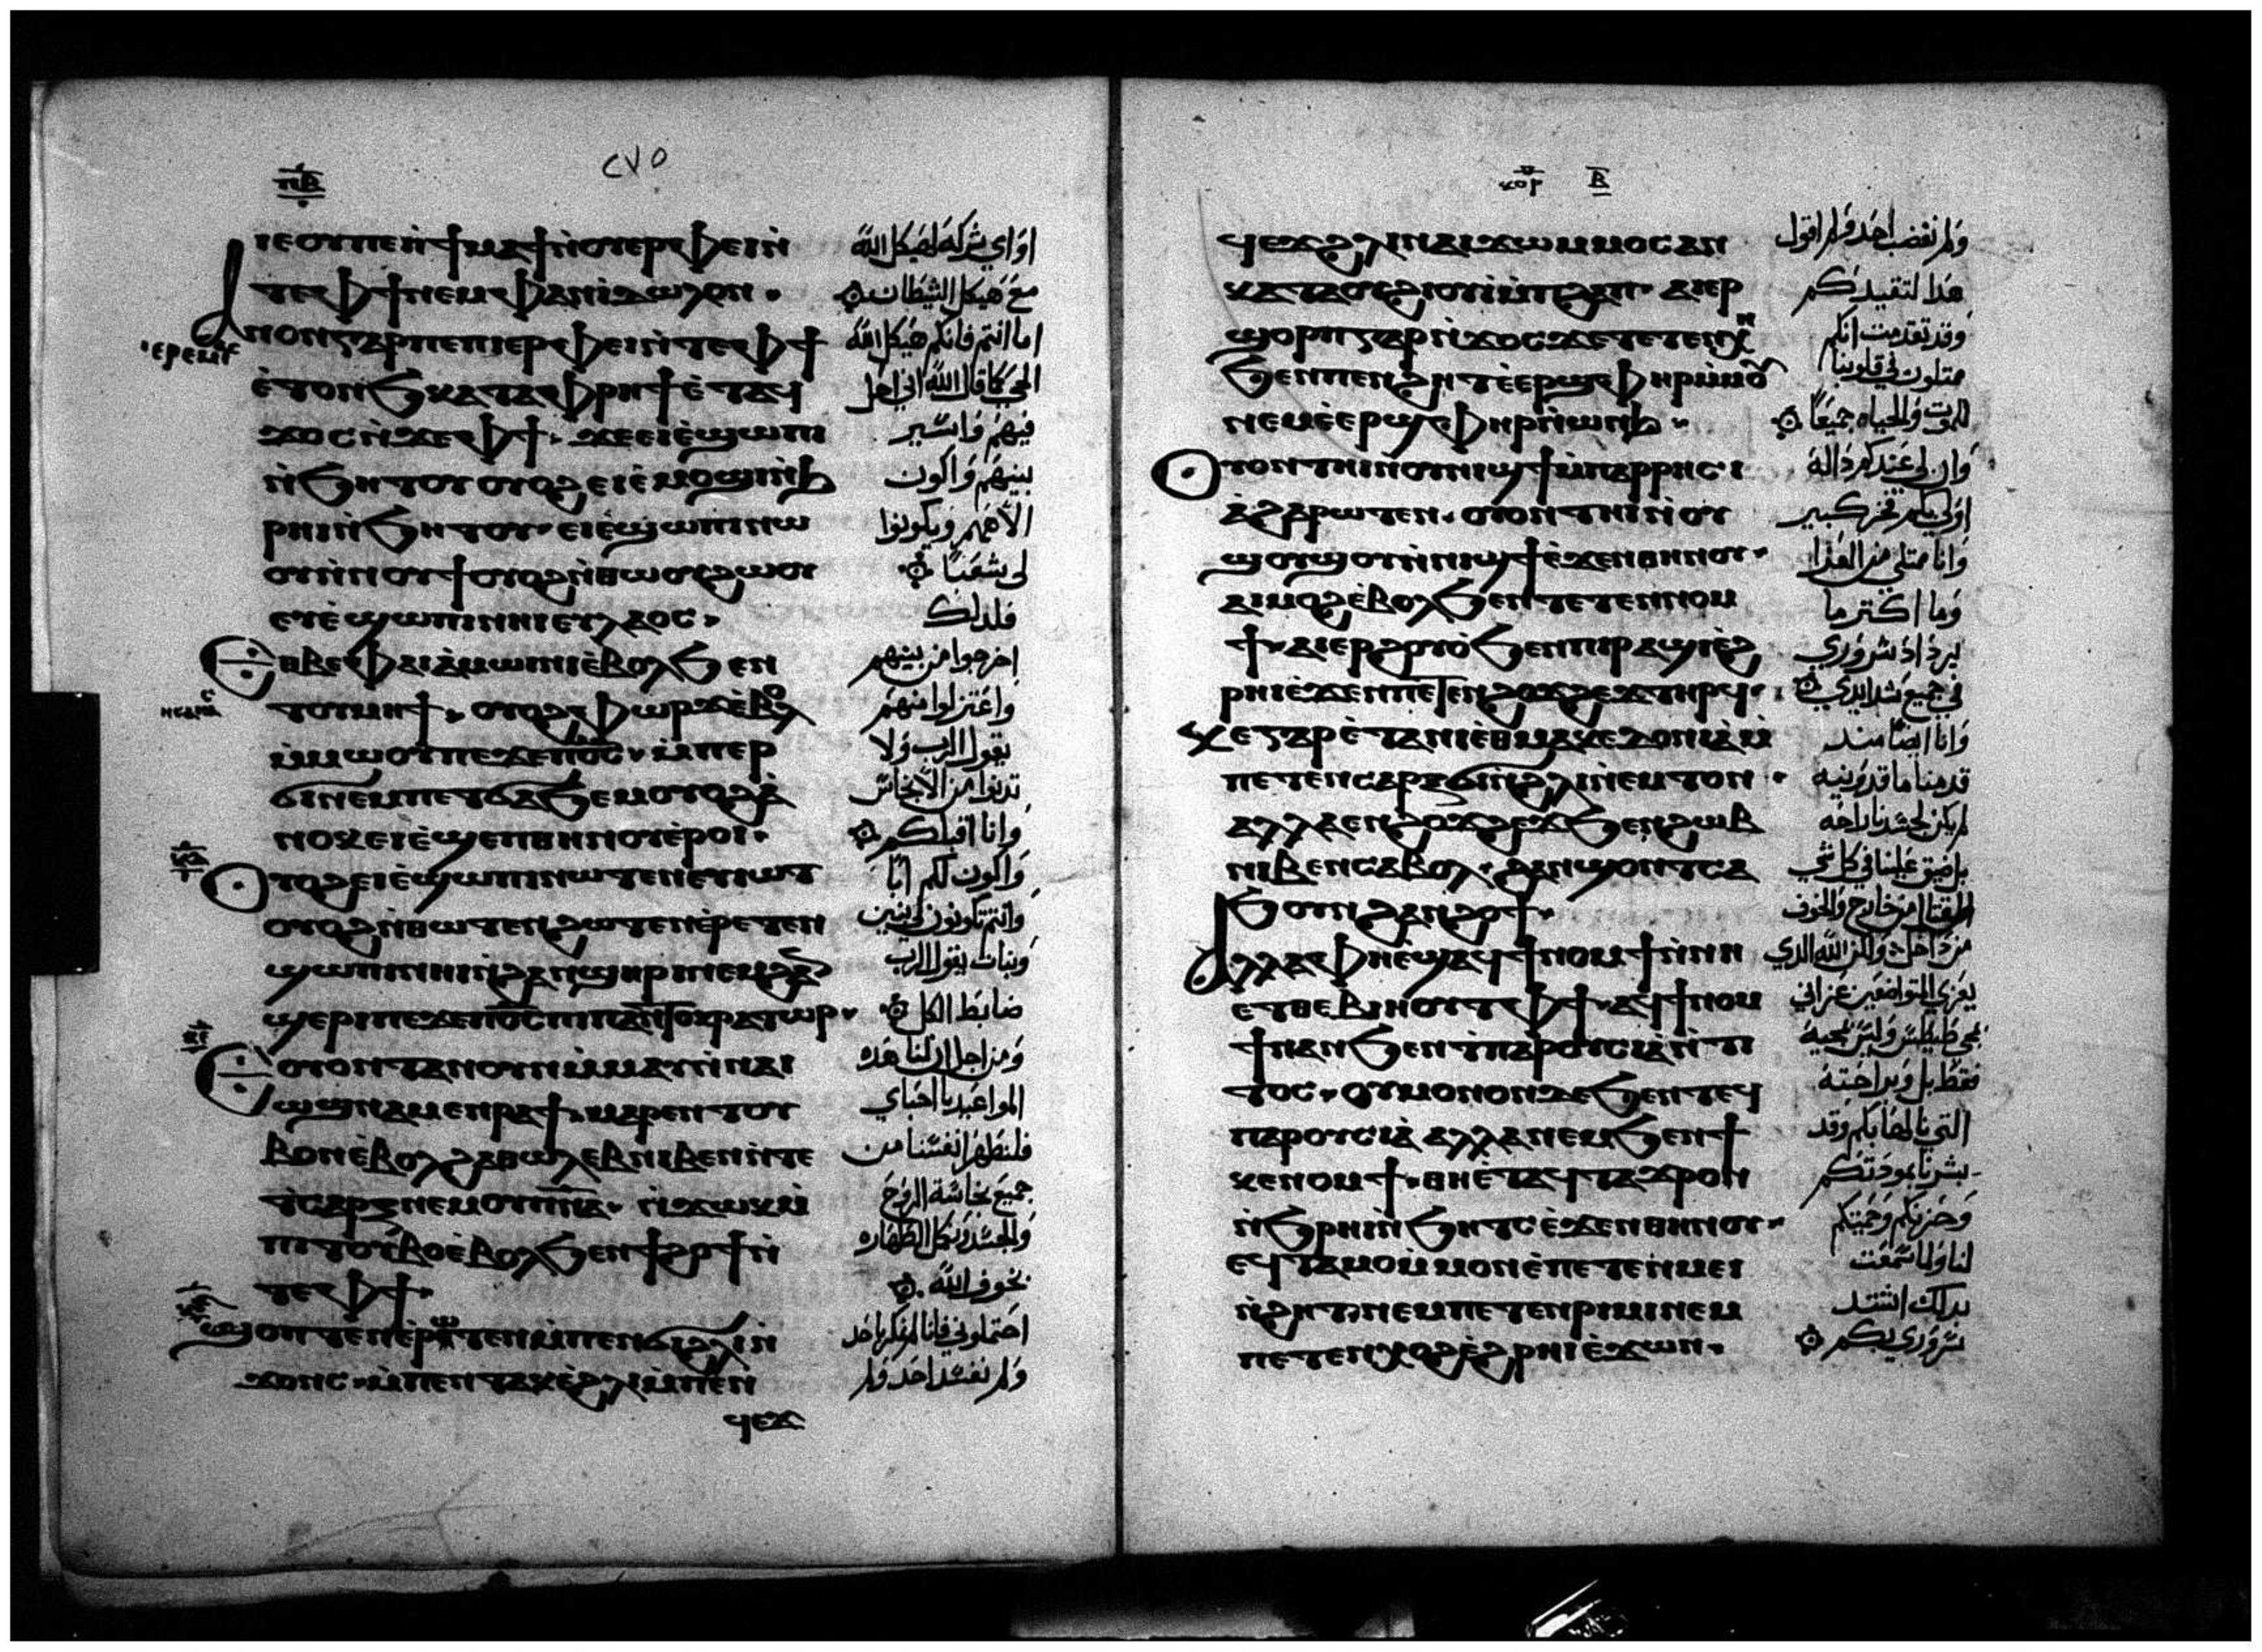 ⲡⲃ
٢٧٥
ⲓⲉⲟⲩⲡⲉⲛϯⲙⲁϯⲛⲟⲩⲉⲣⲫⲉⲓⲛ
ⲧⲉⲫϯⲛⲉⲙⲫⲁⲛⲓⲇⲱⲗⲟⲛ.
ⲁⲛⲟⲛⲅⲁⲣⲡⲉⲡⲓⲉⲣⲫⲉⲓⲛⲧⲉⲫϯ
ⲉⲧⲟⲛϧⲕⲁⲧⲁⲫⲣⲏϯⲉⲧⲁϥ
ϫⲟⲥⲛϫⲉⲫϯ. ϫⲉⲉⲓⲉϣⲱⲡⲓ
ⲛϧⲏⲧⲟⲩⲟⲩⲟϩⲉⲓⲉⲙⲟϣⲓⲛϧ
ⲣⲏⲓⲛϧⲏⲧⲟⲩ. ⲉⲓⲉϣⲱⲡⲓⲛⲱ
ⲟⲩⲛⲛⲟⲩϯⲟⲩⲟϩⲛⲑⲱⲟⲩϩⲱⲟⲩ
ⲉⲩⲉϣⲱⲡⲓⲛⲏⲓⲉⲩⲗⲁⲟⲥ.
ⲉⲑⲃⲉⲫⲁⲓⲁⲙⲱⲓⲛⲓⲉⲃⲟⲗϧⲉⲛ
ⲧⲟⲩⲙⲏϯ. ⲟⲩⲟϩⲫⲱⲣϫⲉⲃⲟⲗ
ⲙⲙⲱⲟⲩⲡⲉϫⲉⲡⲟⲥ. ⲙⲡⲉⲣ
ϭⲓⲛⲉⲙⲡⲉⲧϭⲁϧⲉⲙⲟⲩⲟϩⲁ
ⲛⲟⲕⲉⲓⲉϣⲉⲡⲑⲏⲛⲟⲩⲉⲣⲟⲓ.
ⲟⲩⲟϩⲉⲓⲉϣⲱⲡⲓⲛⲱⲧⲉⲛⲉⲩⲓⲱⲧ
ⲟⲩⲟϩⲛⲑⲱⲧⲉⲛϩⲱⲧⲉⲛⲉⲣⲉⲧⲉⲛ
ϣⲱⲡⲓⲛⲏⲓⲛϩⲁⲛϣⲏⲣⲓⲛⲉⲙϩⲁⲛ
ϣⲉⲣⲓⲡⲉϫⲉⲡⲟⲥⲡⲓⲡⲁⲛⲧⲟⲕⲣⲁⲧⲱⲣ.
ⲉⲟⲩⲟⲛⲧⲁⲛⲟⲩⲛⲙⲙⲁⲩⲛⲛⲁⲓ
ⲱϣⲛⲁⲙⲉⲛⲣⲁϯ. ⲙⲁⲣⲉⲛⲧⲟⲩ
ⲃⲟⲛⲉⲃⲟⲗϩⲁⲑⲱⲗⲉⲃⲛⲓⲃⲉⲛⲛⲧⲉ
ϯⲥⲁⲣⲝⲛⲉⲙⲟⲩⲡⲛⲁ. ⲛϫⲱⲕⲙ
ⲡⲓⲧⲟⲩⲃⲟⲉⲃⲟⲗϧⲉⲛϯϩⲟϯⲛ
ⲧⲉⲫϯ.
ϣⲟⲡⲧⲉⲛⲉⲣⲱⲧⲉⲛⲙⲡⲉⲛϭⲓϩⲗⲓⲛ
ϫⲟⲛⲥ. ⲙⲡⲉⲛⲧⲁⲕⲉϩⲗⲓⲙⲡⲉⲛ
ϥⲉϫ
او اي شركة لهيكل الله
مع هيكل الشيطان
اما انتم فانكم هيكل الله
الحي كما قال الله اني احل
فيهم واسير
بينهم واكون
الاههم ويكونوا
لي شعبًا
فلذلك
اخرجوا من بينهم
واعتزلوا منهم
يقول الرب ولا
تدنوا من الانجاس
وانا اقبلكم
واكون لكم ابًا
وانتم تكونون لي بنين
وبنات يقول الرب
ضابط الكل
ومن اجل ان لنا هذه
المواعيد يا احباي
فلنطهر انفسنا من
جميع نجاسة الروح
والجسد ونكمل الطهاره
بخوف الله
احتملوني فانا لم نكر باحد
ولم نفسد احد ولم
ⲕⲟⲣ ⲃ
ϥⲉϫϩⲗⲓⲛⲁⲓϫⲱⲙⲙⲟⲥⲁⲛ
ⲕⲁⲧⲁⲟⲩϩⲓⲟⲩⲓⲙⲡϩⲁⲡ. ⲁⲓⲉⲣ
ϣⲟⲣⲡⲅⲁⲣⲛϫⲟⲥϫⲉⲧⲉⲧⲉⲛⲭⲏ
ϧⲉⲛⲡⲉⲛϩⲏⲧⲉⲉⲣϣⲫⲏⲣⲙⲙⲟⲩ
ⲛⲉⲙⲉⲉⲣϣⲫⲏⲣⲛⲱⲛϧ.
ⲟⲩⲟⲛⲧⲏⲓⲛⲟⲩⲛⲓϣϯⲙⲡⲁⲣⲣⲏⲥⲓ
ⲁϩⲁⲣⲱⲧⲉⲛ. ⲟⲩⲟⲛⲧⲏⲓⲛⲟⲩ
ϣⲟⲩϣⲟⲩⲛⲛⲓϣϯⲉϫⲉⲛⲑⲏⲛⲟⲩ.
ⲁⲓⲙⲟϩⲉⲃⲟⲗϧⲉⲛⲧⲉⲧⲉⲛⲛⲟⲙ
ϯ. ⲁⲓⲉⲣϩⲟⲩⲟϧⲉⲛⲡⲓⲣⲁϣⲓⲉϩ
ⲣⲏⲓⲉϫⲉⲛⲡⲉⲛϩⲟϫϩⲉϫⲧⲏⲣϥ.
ⲕⲉⲅⲁⲣⲉⲧⲁⲛⲓⲉⲑⲙⲁⲕⲉⲇⲟⲛⲓⲁⲙ
ⲡⲉⲧⲉⲛⲥⲁⲣⲝϭⲓⲛϩⲗⲓⲛⲉⲙⲧⲟⲛ.
ⲁⲗⲗⲁⲉⲛϩⲟϫϩⲉϫϧⲉⲛϩⲱⲃ
ⲛⲓⲃⲉⲛⲥⲁⲃⲟⲗ. ϩⲁⲛϣⲟⲛⲧⲥⲁ
ϧⲟⲩⲛϩⲁⲛϩⲟϯ.
ⲁⲗⲗⲁⲫⲏⲉϣⲁϥϯⲛⲟⲙϯⲛⲛⲏ
ⲉⲧⲑⲉⲃⲓⲏⲟⲩⲧⲉⲫϯ. ⲁϥϯⲛⲟⲙ
ϯⲛⲁⲛϧⲉⲛϯⲡⲁⲣⲟⲩⲥⲓⲁⲛⲧⲓ
ⲧⲟⲥ. ⲟⲩⲙⲟⲛⲟⲛⲇⲉϧⲉⲛⲧⲉϥ
ⲡⲁⲣⲟⲩⲥⲓⲁⲁⲗⲗⲁⲛⲉⲙϧⲉⲛϯ
ⲕⲉⲛⲟⲙϯ. ⲑⲏⲉⲧⲁϥⲧⲁϫⲣⲟⲛ
ⲛϧⲣⲏⲓⲛϧⲏⲧⲥⲉϫⲉⲛⲑⲏⲛⲟⲩ.
ⲉϥⲧⲁⲙⲟⲙⲙⲟⲛⲉⲡⲉⲧⲉⲛⲙⲉⲓ
ⲛϩⲏⲧ. ⲛⲉⲙⲡⲉⲧⲉⲛⲣⲓⲙⲓⲛⲉⲙ
ⲡⲉⲧⲉⲛⲭⲟϩⲉϩⲣⲏⲓⲉϫⲱⲛ.
ولم نغضب احد ولم اقول
هذا لتقيدكم
وقد تقدمت انكم
حتلون في قلوبنا
للموت والحياه جميعًا
وان لي عندكم دالة
ولي بكم فخر كبير
وانا ممتلي من العزا
وما اكتر ما
يزداد سروري
في جميع شدايدي
وانا ايضًا منذ
قدمنا ماقدونيه
لم يكن لجسدنا راحه
بل ضيق علينا في كل شي
القتال من خارج والخوف
من داخل ولكن الله الدي
يعزي المتواضعين عزاني
بمجي طيطس وليس بمجيه
فقط بل وبراحته
التي نالها بكم وقد
بشرنا بمودتكم
وحزنكم وحميتكم
لنا ولما سمعت
بدلك اشتد
سروري بكم